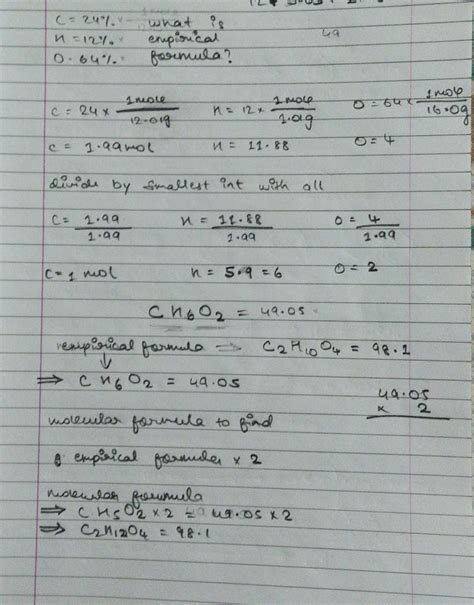 C = 24%. what is
H = 12%. empirical
O = 64%. formula?
49
C = 24 x 1mole/12.01g H = 12 x 1mole/1.01g O = 64 x 1mole/16.0g
C = 1.99mol H = 11.88 O = 4
divide by smallest int with all
C = 1.99/1.99 H = 11.88/1.99 O = 4/1.99
C = 1 mol H = 5.9 = 6 O = 2
CH6O2 = 49.05
empirical formula ⇒ C2H10O4 = 98.1
⇒ CH6O2 = 49.05
49.05
x 2
molecular formula to find
empirical formula x 2
molecular formula
⇒ CH5O2 x 2 = 49.05 x 2
⇒ C2H12O4 = 98.1